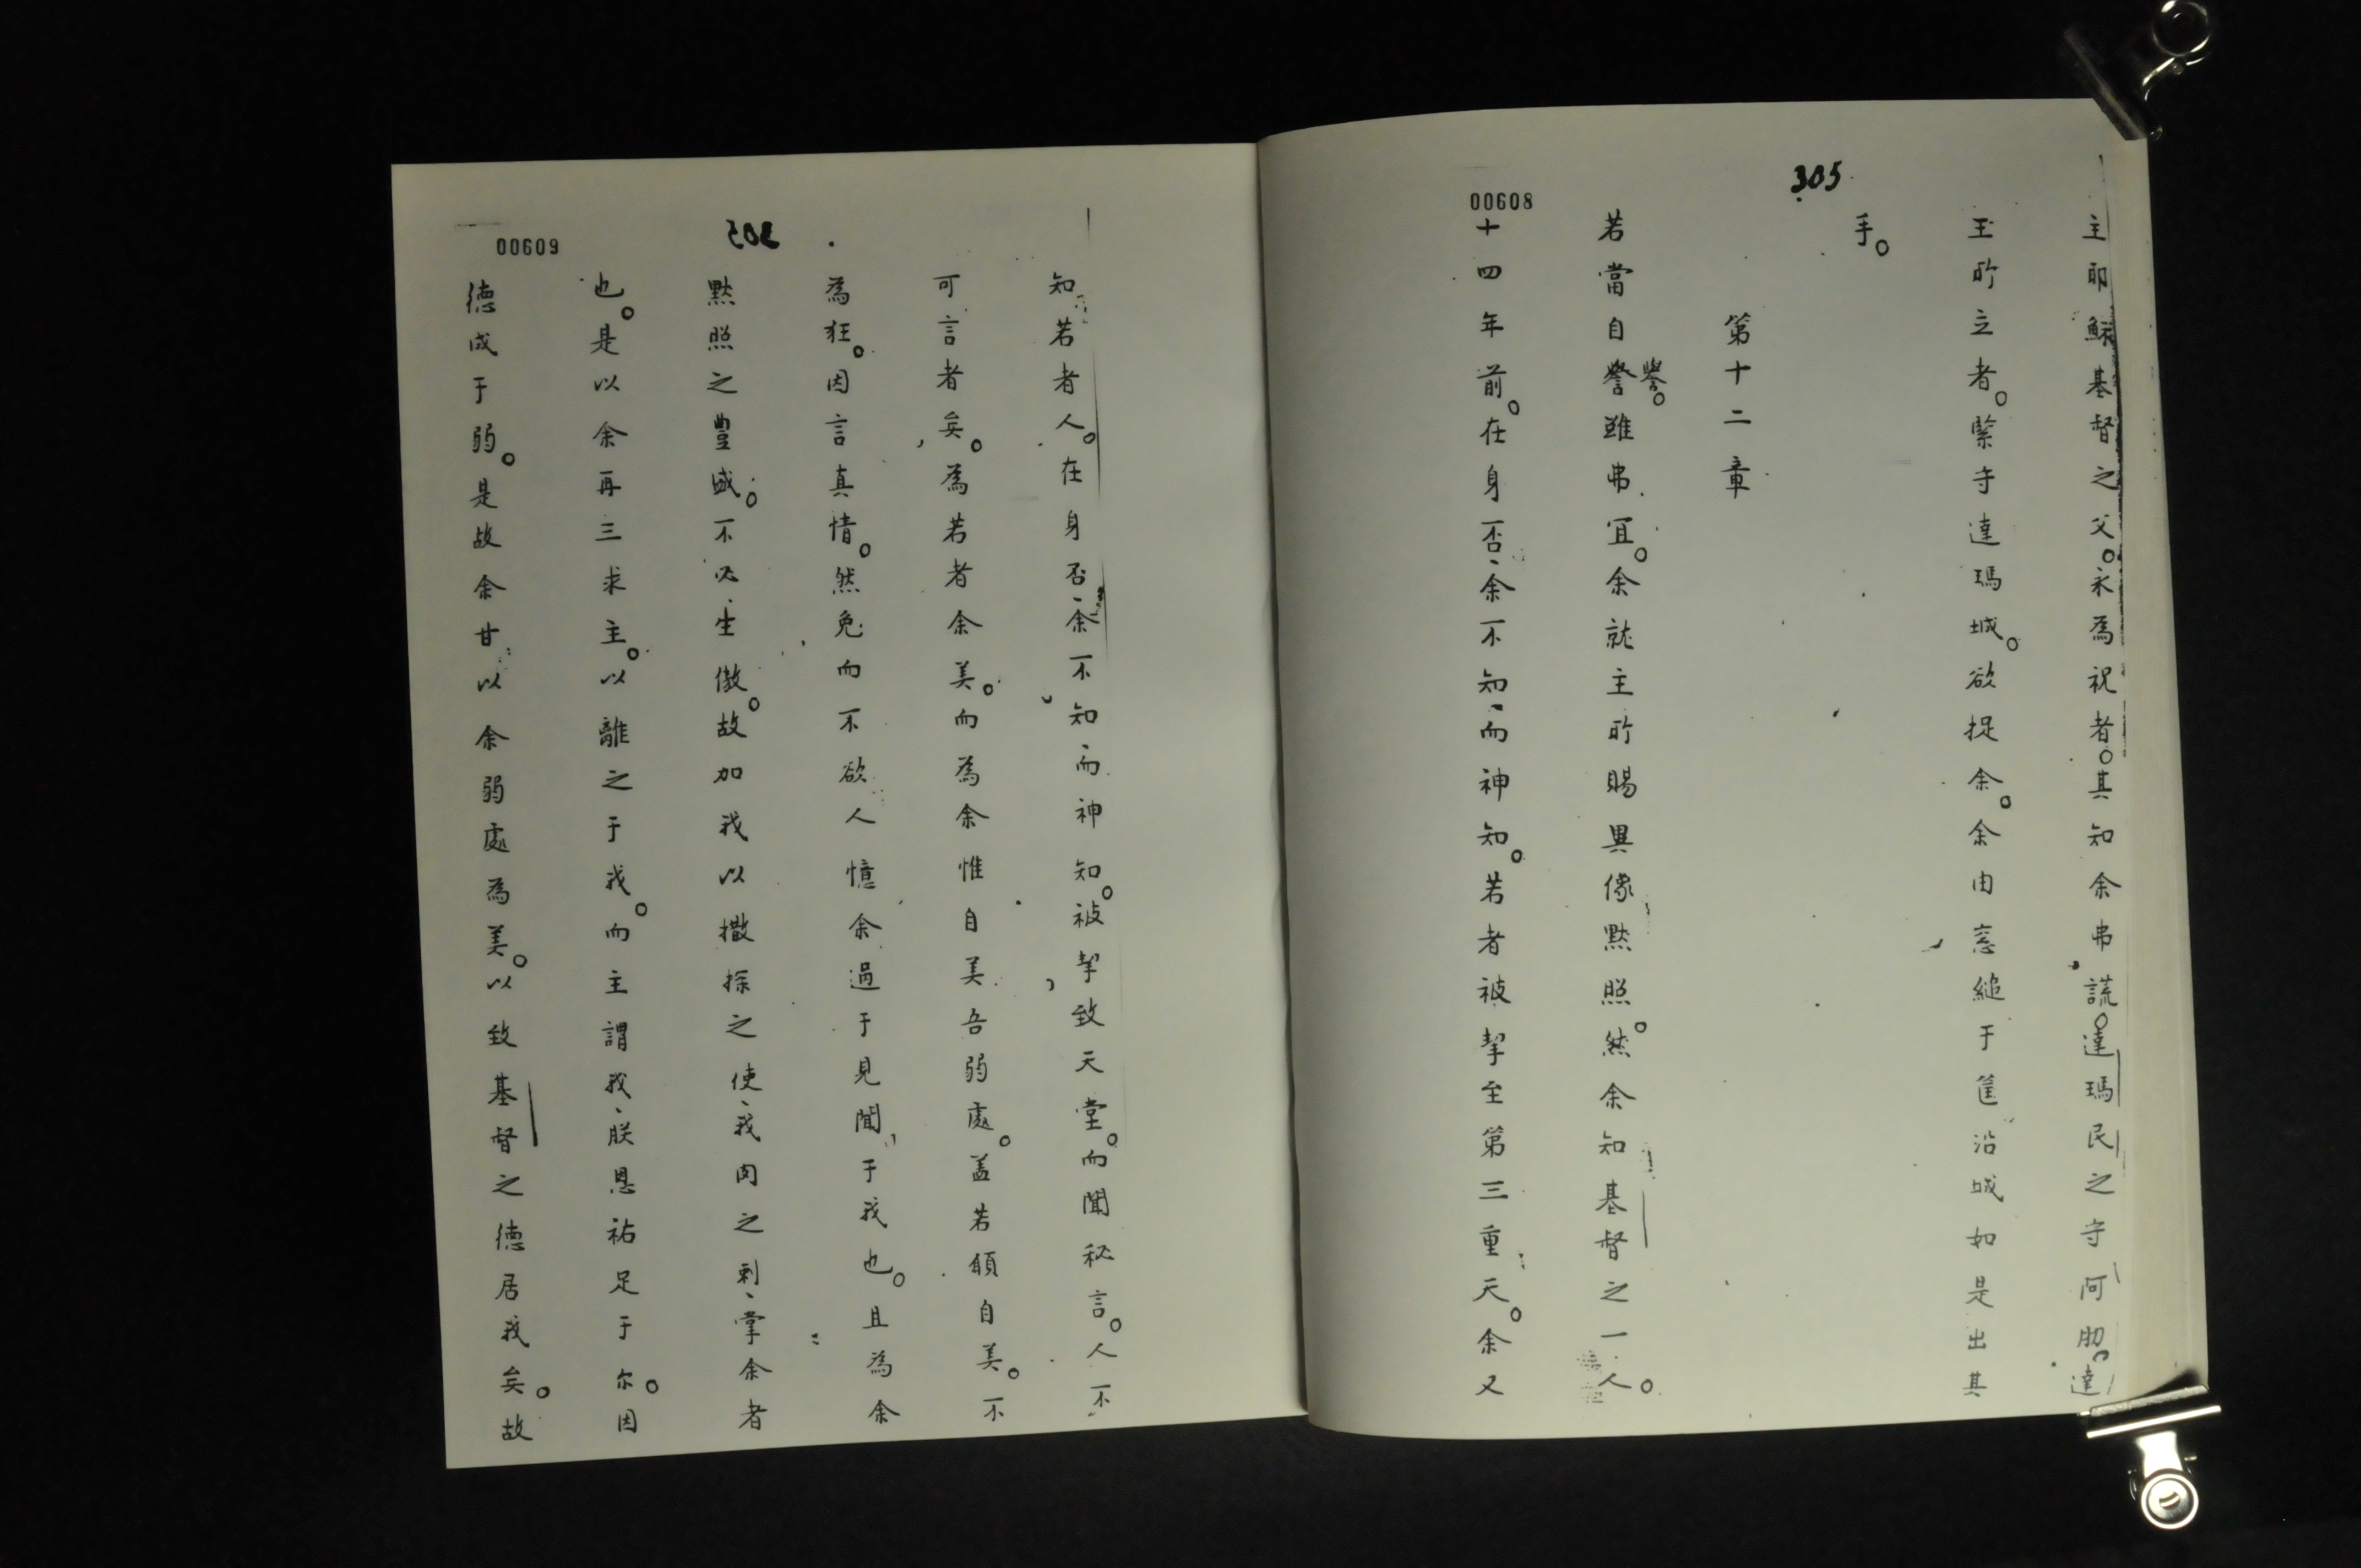 00608
305
主耶穌基督之父。永為祝者。其知余弗謊。達瑪民之守阿肋。達
王所立者。緊守達瑪城。欲捉余。余由窓縋于筐沿城如是出其
手。
第十二章
若當自譽。雖弗宜。余就主所賜異像默照。然余知基督之一人。
譽。
十四年前。在身否、余不知、而神知。若者被挈至第三重天。余又
00609
知若者人。在身否、余不知、而神知。被挈致天堂。而聞秘言。人不
可言者矣。為若者余美。而為余惟自美吾弱處。盖若願自美。不
為狂。因言真情。然免而不欲人憶余過于見聞于我也。且為余
默照之豐盛。不必生傲。故加我以撒探之使、我肉之刺、掌余者
也。是以余再三求主。以離之于我。而主謂我、朕恩祐足于尔。因
德成于弱。是故余甘以余弱處為美。以致基督之德居我矣。故